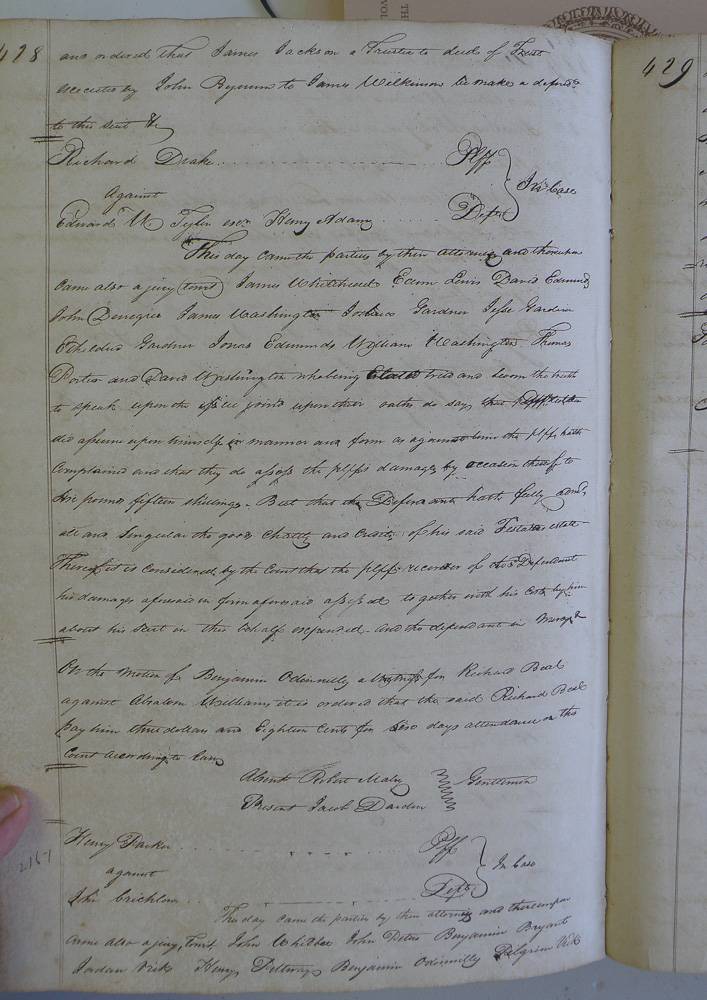 428
and ordered that James Jackson a Trustee to deed of Trust
executed by John Bynum to James Wilkinson be made a defend.t
to this suit &c
Richard Drake Plff
In Case
against
Edward W. Tyler exor Henry Adams Deft
This day came the parties by their attornies and thereupon
came also a jury (towit) James Whitehead Exum Lewis David Edmunds
John James Washington Joshua Gardner Jesse Gardner
Gardner Jonas Edmunds William Washington Thomas
Porter and David Washington who being tried and sworn the truth
to speak upon the issue joined upon their oaths do say that
did assume upon himself in manner and form as against him the plff hath
complained and that they do assess the plffs damages by occasion thereof to
pounds fifteen shillings. But that the Defendant hath fully adm.d
all and Singular the goods Chattels and Credits of his said Testators estate
Therefore it is considered by the Court that the plff recover of the s.d Defendant
his damages aforesaid in form aforesaid assessed together with his Costs by him
about his suit in this behalf expended. and the defendant in mercy &c
On the motion of Benjamin Odonnelly a Witness for Richard Beal
against Absalom Williams it is ordered that the said Richard Beal
pay him three dollars and Eighteen Cents for Six days attendance on this
Court according to law
Absent Robert Mabry Gentlemen
Present Jacob Darden
Henry Parker Plff
In Case
against
Jno Crichlow Deft
This day came the parties by their attornies and thereupon
came also a jury, towit, John Whitehead John Peters Benjamin Bryant
Jordan Vick Henry Benjamin Odonnelly Pelgrim Vick
2167
429